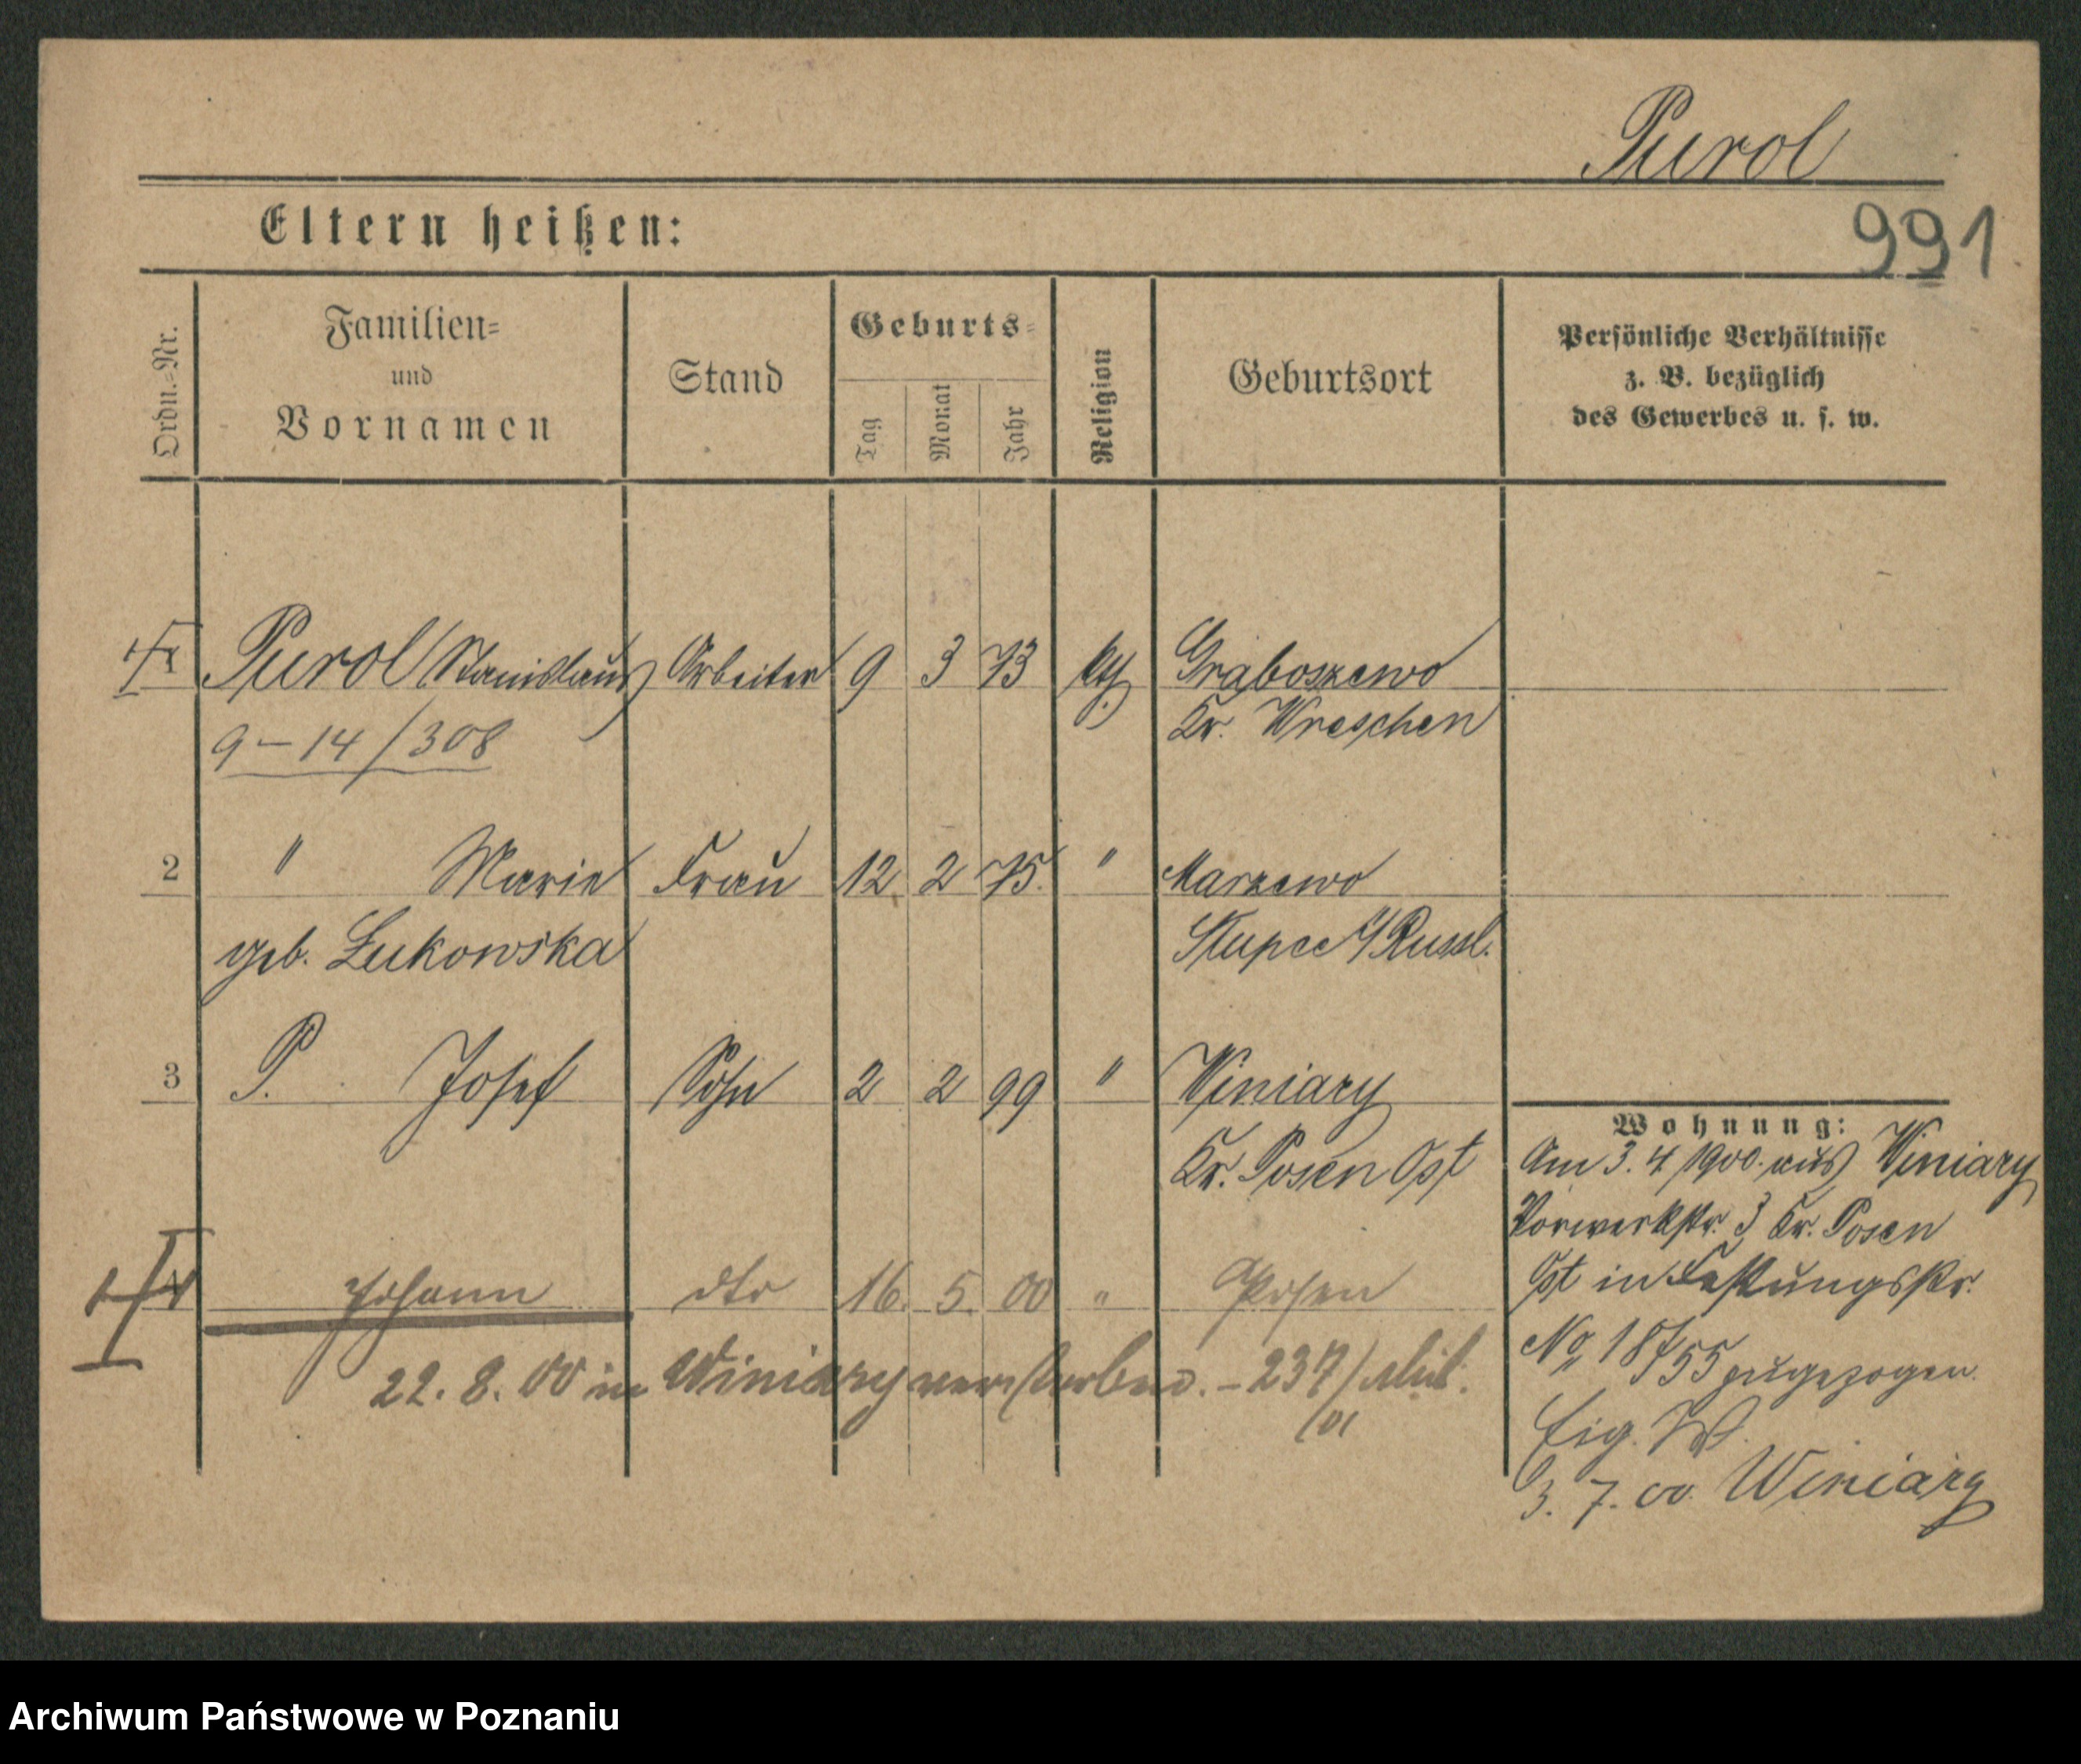 Purol
991
Eltern heißen:
Ordn.-Nr.
Familien-
und
Vornamen
Stand
Geburts-
Tag
Monat
Jahr
Religion
Geburtsort
Persönliche Verhältnisse
z. B. bezüglich
des Gewerbes u. s. w.
1 Purol Stanislaus Arbeiter 9 3 73 kth. Graboszewo
9-14/308 Kr. Wreschen
2 " Marie Frau 12 2 75. " Marzewo
geb. Łukowska Słupce /Russl.
3 P. Josef Sohn 2 2 99 " Winiary
Kr. Posen Ost
4 Johann dto 16. 5. 00 " Posen
22. 8. 00 in Winiary verstorben. - 237/
/01
Wohnung:
Am 3. 4 1900. aus Winiary
Vorwerkstr. 3 Kr. Posen
Ost in Festungsstr.
No 18/55 zugezogen.
Eig. W.
3. 7. 00. Winiary
Archiwum Państwowe w Poznaniu